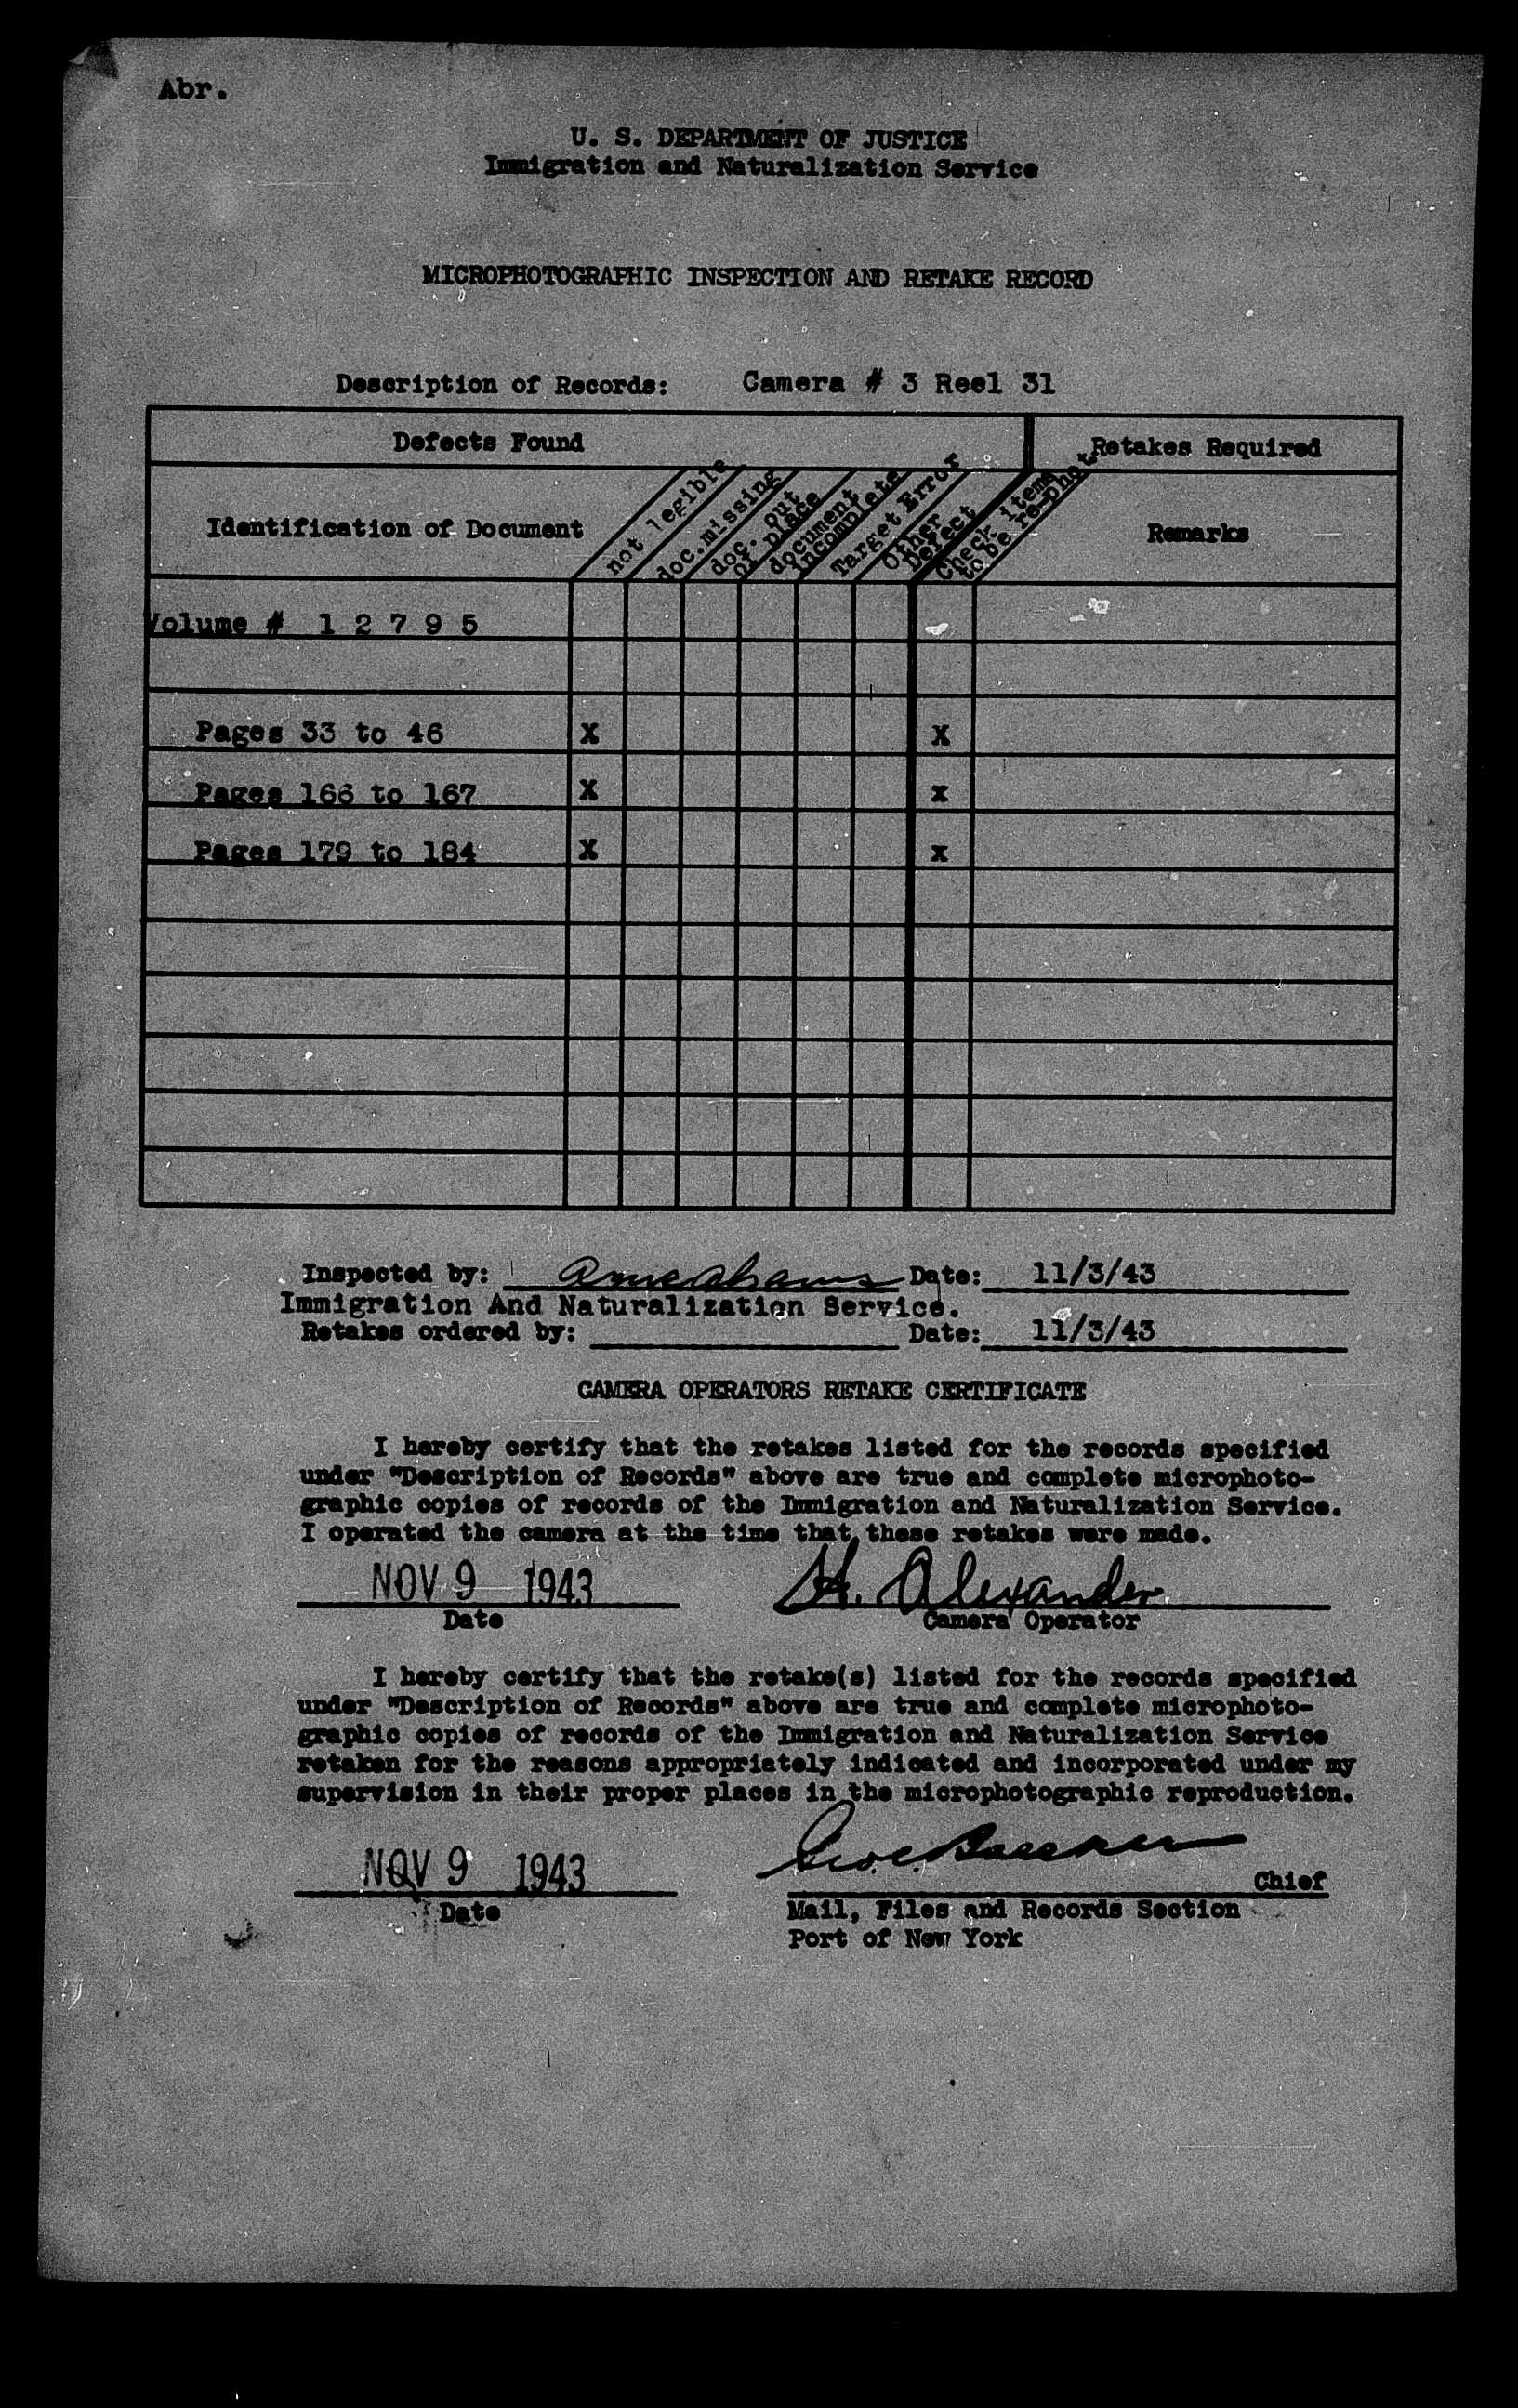 Abr.
U. S. DEPARTMENT OF JUSTICE
Immigration and Naturalization Service
MICROPHOTOGRAPHIC INSPECTION AND RETAKE RECORD
Description of Records: Camera # 3 Reel 31
Defects Found
Retakes Required
Identification of Document
not legible
doc. missing
doc. out
of place
document
incomplete
Target Error
Other
Defect
Check items
to be re-phot.
Remarks
Volume # 1 2 7 9 5
Pages 33 to 46 X X
Pages 166 to 167 X x
Pages 179 to 184 X x
Inspected by: Date: 11/3/43
Immigration And Naturalization Service.
Retakes ordered by: Date: 11/3/43
CAMERA OPERATORS RETAKE CERTIFICATE
I hereby certify that the retakes listed for the records specified
under "Description of Records" above are true and complete microphoto-
graphic copies of records of the Immigration and Naturalization Service.
I operated the camera at the time that these retakes were made.
NOV 9 1943 H. Alexander
Date Camera Operator
I hereby certify that the retake(s) listed for the records specified
under "Description of Records" above are true and complete microphoto-
graphic copies of records of the Immigration and Naturalization Service
retaken for the reasons appropriately indicated and incorporated under my
supervision in their proper places in the microphotographic reproduction.
NOV 9 1943
Chief
Date
Mail, Files and Records Section
Port of New York